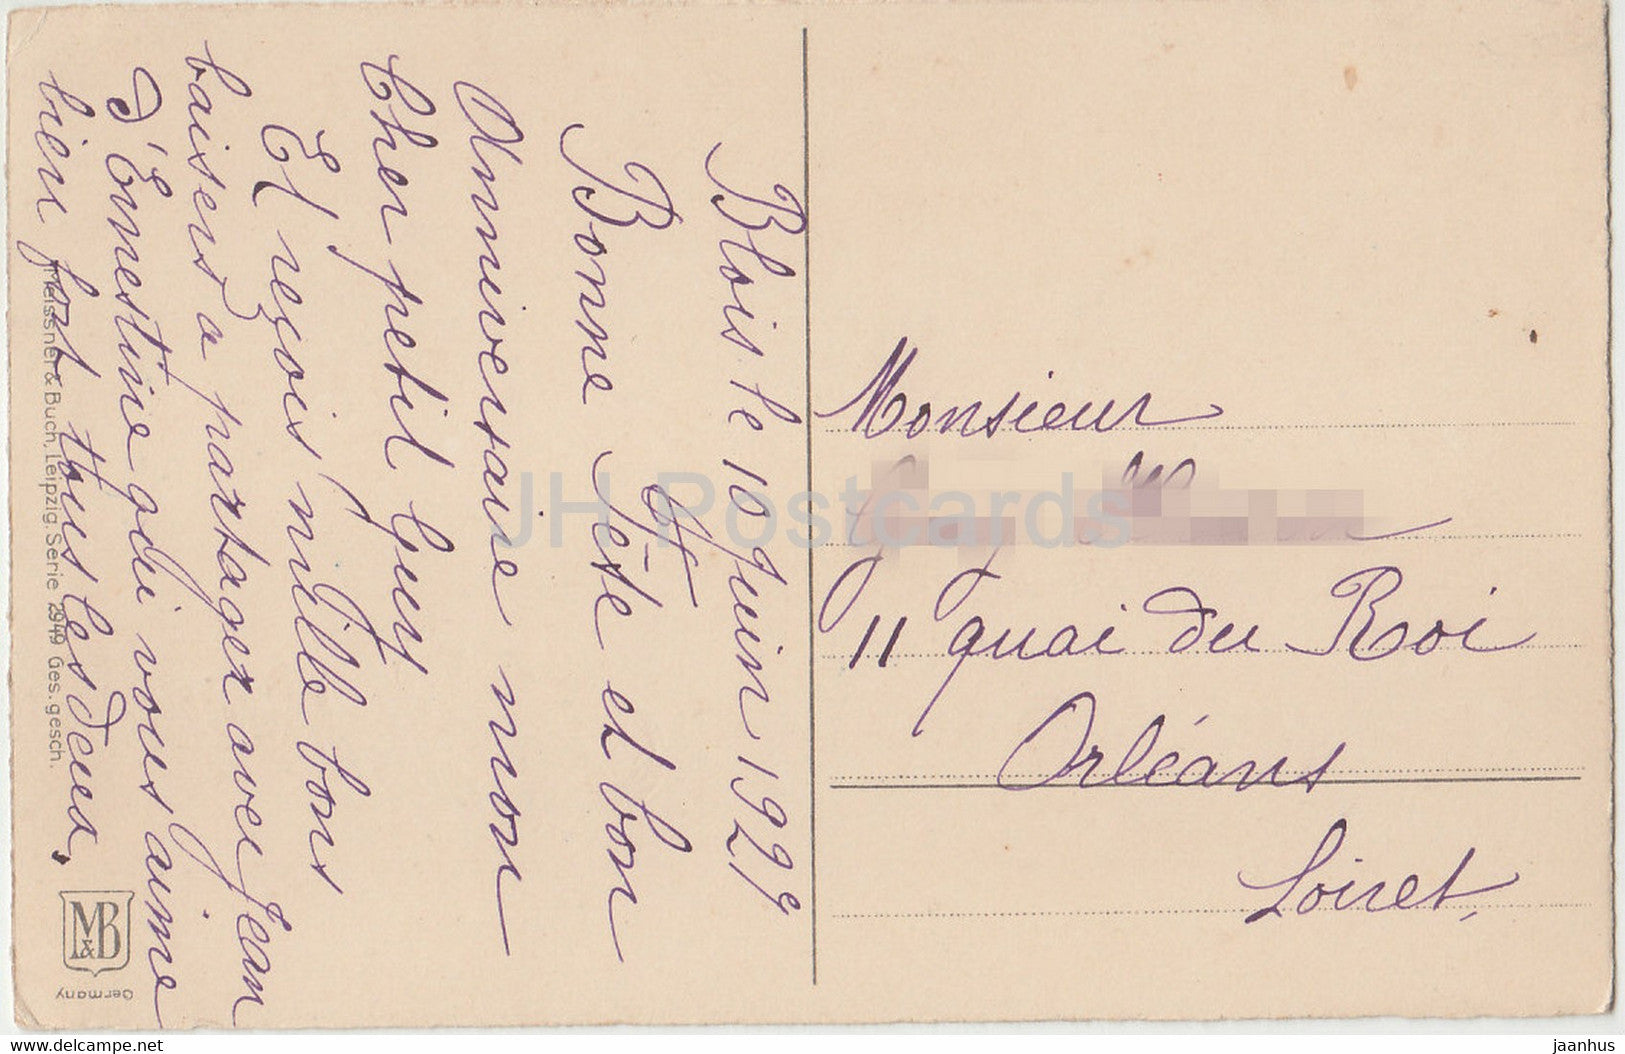 Blois le 10 Juin 1929
Bonne Fête et bon
Anniversaire mon
Cher petit Guy
Et reçois mille bons
baisers a partager avec Jean
d'Ernestine qui vous aime
bien fort tous les deux.
Monsieur
11 quai du Roi
Orléans
Loiret,
Meissner & Buch, Leipzig. Serie 2949 Ges. gesch.
M&B
Germany
JH Postcards
delcampe.net
jaanhus